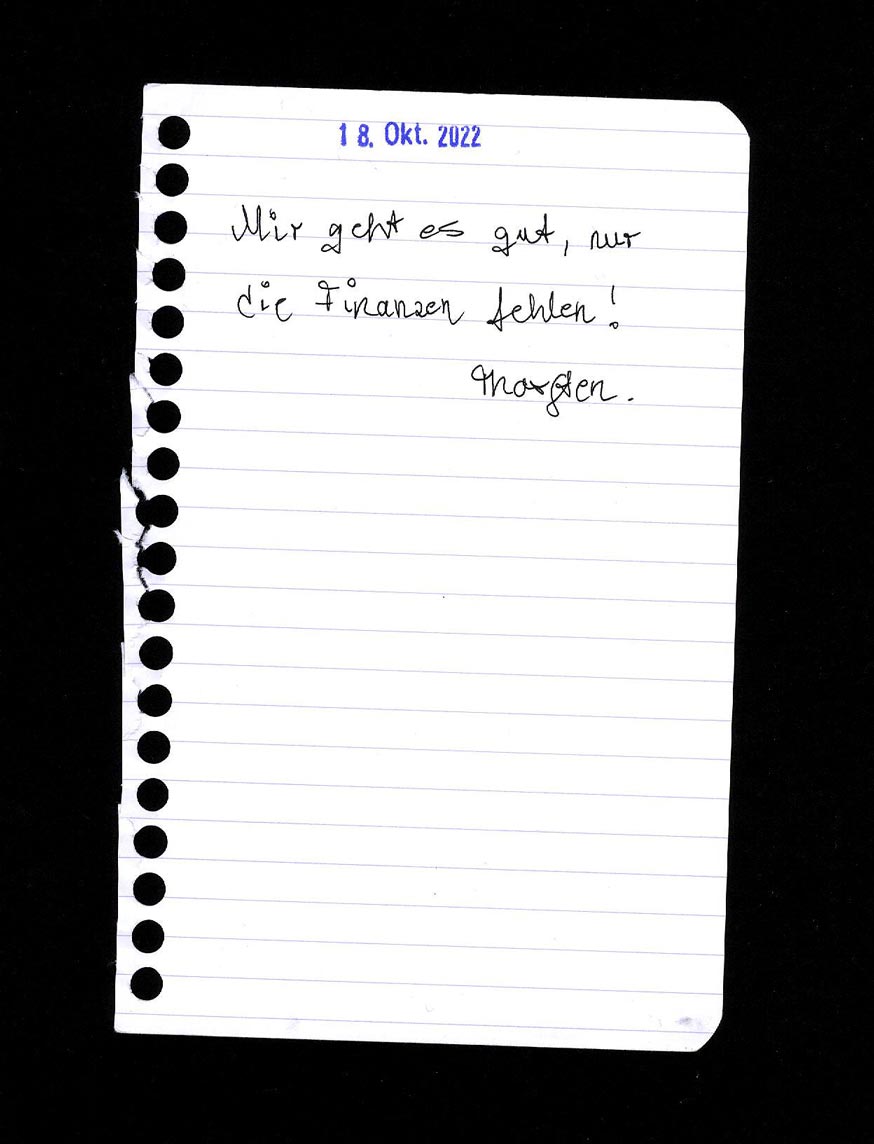 18. Okt. 2022
Mir geht es gut, nur
die Finanzen fehlen!